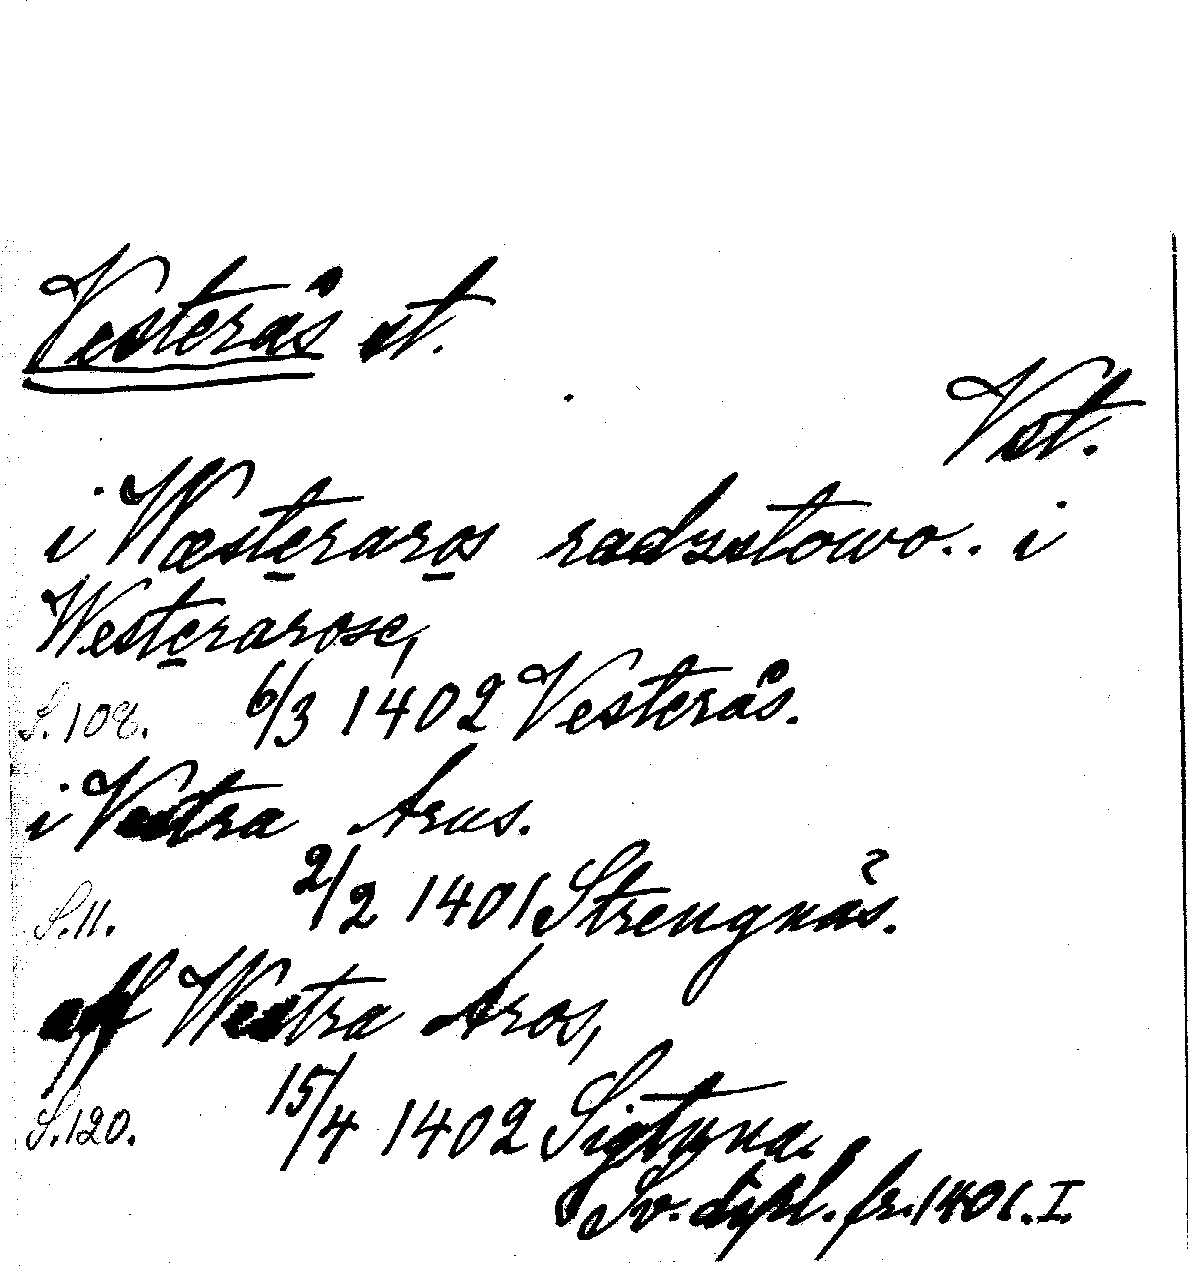 Vesterås st.
Vst.
i Wæsteraros radzstowo.. i
Westerarose,
S. 108. 6/3 1402 Vesterås.
i Vestra Arus.
S. 11. 2/2 1401 Strengnäs.
aff Westra Aros,
S. 120. 15/4 1402 Sigtuna.
Sv. dipl. fr. 1401. I.